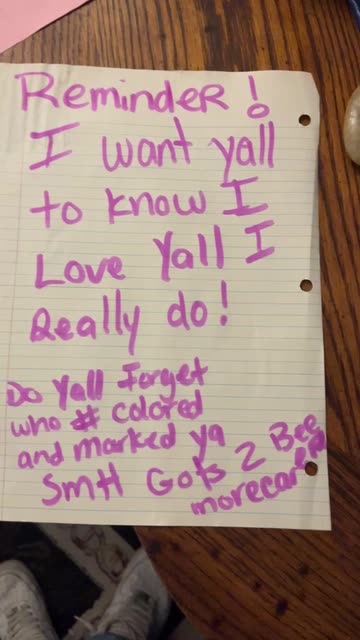 Reminder!
I want yall
to know I
Love Yall I
Really do!
Do Yall Forget
who # colored
and marked ya
SmH Gots 2 Bee
morecareful